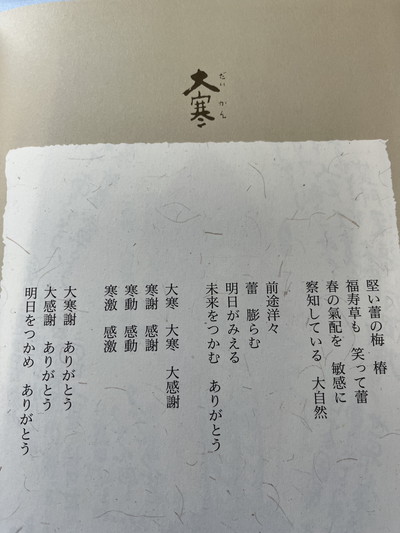 大寒
だいかん
堅い蕾の梅 椿
福寿草も 笑って蕾
春の氣配を 敏感に
察知している 大自然
前途洋々
蕾 膨らむ
明日がみえる
未来をつかむ ありがとう
大寒 大寒 大感謝
寒謝 感謝
寒動 感動
寒激 感激
大寒謝 ありがとう
大感謝 ありがとう
明日をつかめ ありがとう